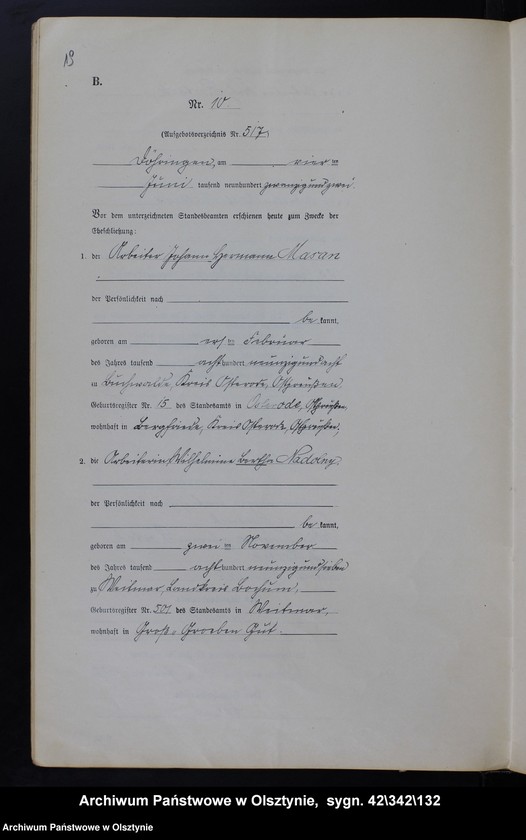 19
B.
Nr. 10
(Aufgebotsverzeichnis Nr. 517)
Döhringen, am vier ten
Juni tausend neunhundert zwanzigundzwei
Vor dem unterzeichneten Standesbeamten erschienen heute zum Zwecke der
Eheschließung:
1. der Arbeiter Johann Hermann Masan
der Persönlichkeit nach
be kannt,
geboren am ten Februar
des Jahres tausend acht hundert neunzigundacht
zu Buchwalde, Kreis Osterode, Ostpreußen
Geburtsregister Nr. 15 des Standesamts in Osterode, Ostpreußen
wohnhaft in Bergfriede, Kreis Osterode, Ostpreußen,
2. die Arbeiterin Wilhelmine Bertha Nadolny
der Persönlichkeit nach
be kannt,
geboren am zwei ten November
des Jahres tausend acht hundert neunzigundsieben
zu Weitmar, Landkreis Bochum,
Geburtsregister Nr. des Standesamts in Weitmar,
wohnhaft in Groß Groeben Gut
Archiwum Państwowe w Olsztynie, sygn. 42\342\132
Archiwum Państwowe w Olsztynie